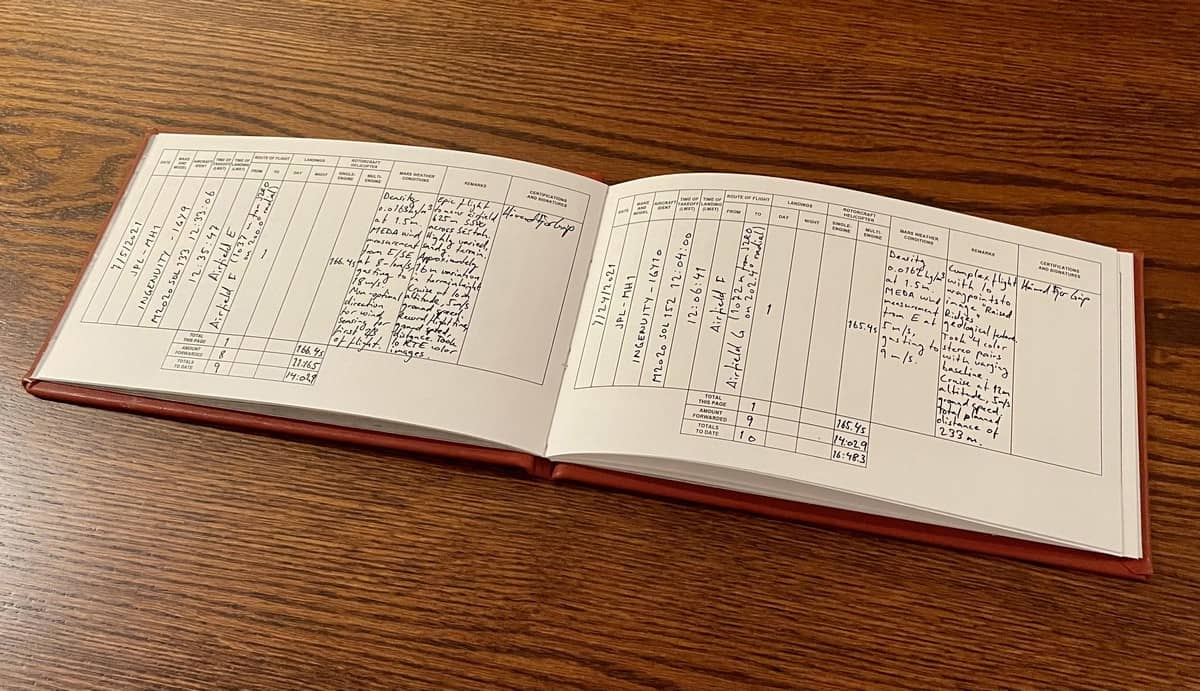 DATE
MAKE
AND
MODEL
AIRCRAFT
IDENT
TIME OF
TAKEOFF
(LMST)
TIME OF
LANDING
(LMST)
ROUTE OF FLIGHT
FROM
TO
LANDINGS
DAY
NIGHT
ROTORCRAFT
HELICOPTER
SINGLE-
ENGINE
MULTI-
ENGINE
MARS WEATHER
CONDITIONS
REMARKS
CERTIFICATIONS
AND SIGNATURES
7/5/2021
JPL-MH1
INGENUITY - IGY9
M2020 SOL 133 12:33:06
12:35:47
Airfield E
Airfield F (1037 m from JZRO
on 200.0° radial)
1
166.4s
Density
kg/m3
at 1.5m
MEDA wind
measurement
from E/SE
at 8m/s
gusting to
18 m/s.
Non optimal
direction
for wind
sensing for
first 2/3
of flight.
Epic flight
near Airfield
625m SSW
across Séítah.
Highly varied,
sandy terrain.
Approximately
16 m variation
in terrain height
Cruise at 10m
altitude, 5m/s
ground speed.
Record flight time,
ground speed,
distance. Took
10 RTE color
images.
TOTAL
THIS PAGE
1
166.4s
AMOUNT
FORWARDED
8
11:16.5
TOTALS
TO DATE
9
14:02.9
DATE
MAKE
AND
MODEL
AIRCRAFT
IDENT
TIME OF
TAKEOFF
(LMST)
TIME OF
LANDING
(LMST)
ROUTE OF FLIGHT
FROM
TO
LANDINGS
DAY
NIGHT
ROTORCRAFT
HELICOPTER
SINGLE-
ENGINE
MULTI-
ENGINE
MARS WEATHER
CONDITIONS
REMARKS
CERTIFICATIONS
AND SIGNATURES
7/24/2021
JPL-MH1
INGENUITY - IGY10
M2020 SOL 152 12:04:00
12:06:41
Airfield F
Airfield G (1072 m from JZRO
on 202.4° radial)
1
165.4s
Density
0.0162 kg/m3
at 1.5m
MEDA wind
measurement
from E at
5 m/s,
gusting to
9 m/s.
Complex flight
with 10
waypoints to
image "Raised
Ridges"
geological feature.
Took 4 color
stereo pairs
with varying
baseline.
Cruise at 12m
altitude, 5m/s
ground speed.
Total planned
distance of
233 m.
TOTAL
THIS PAGE
1
165.4s
AMOUNT
FORWARDED
9
14:02.9
TOTALS
TO DATE
10
16:48.3